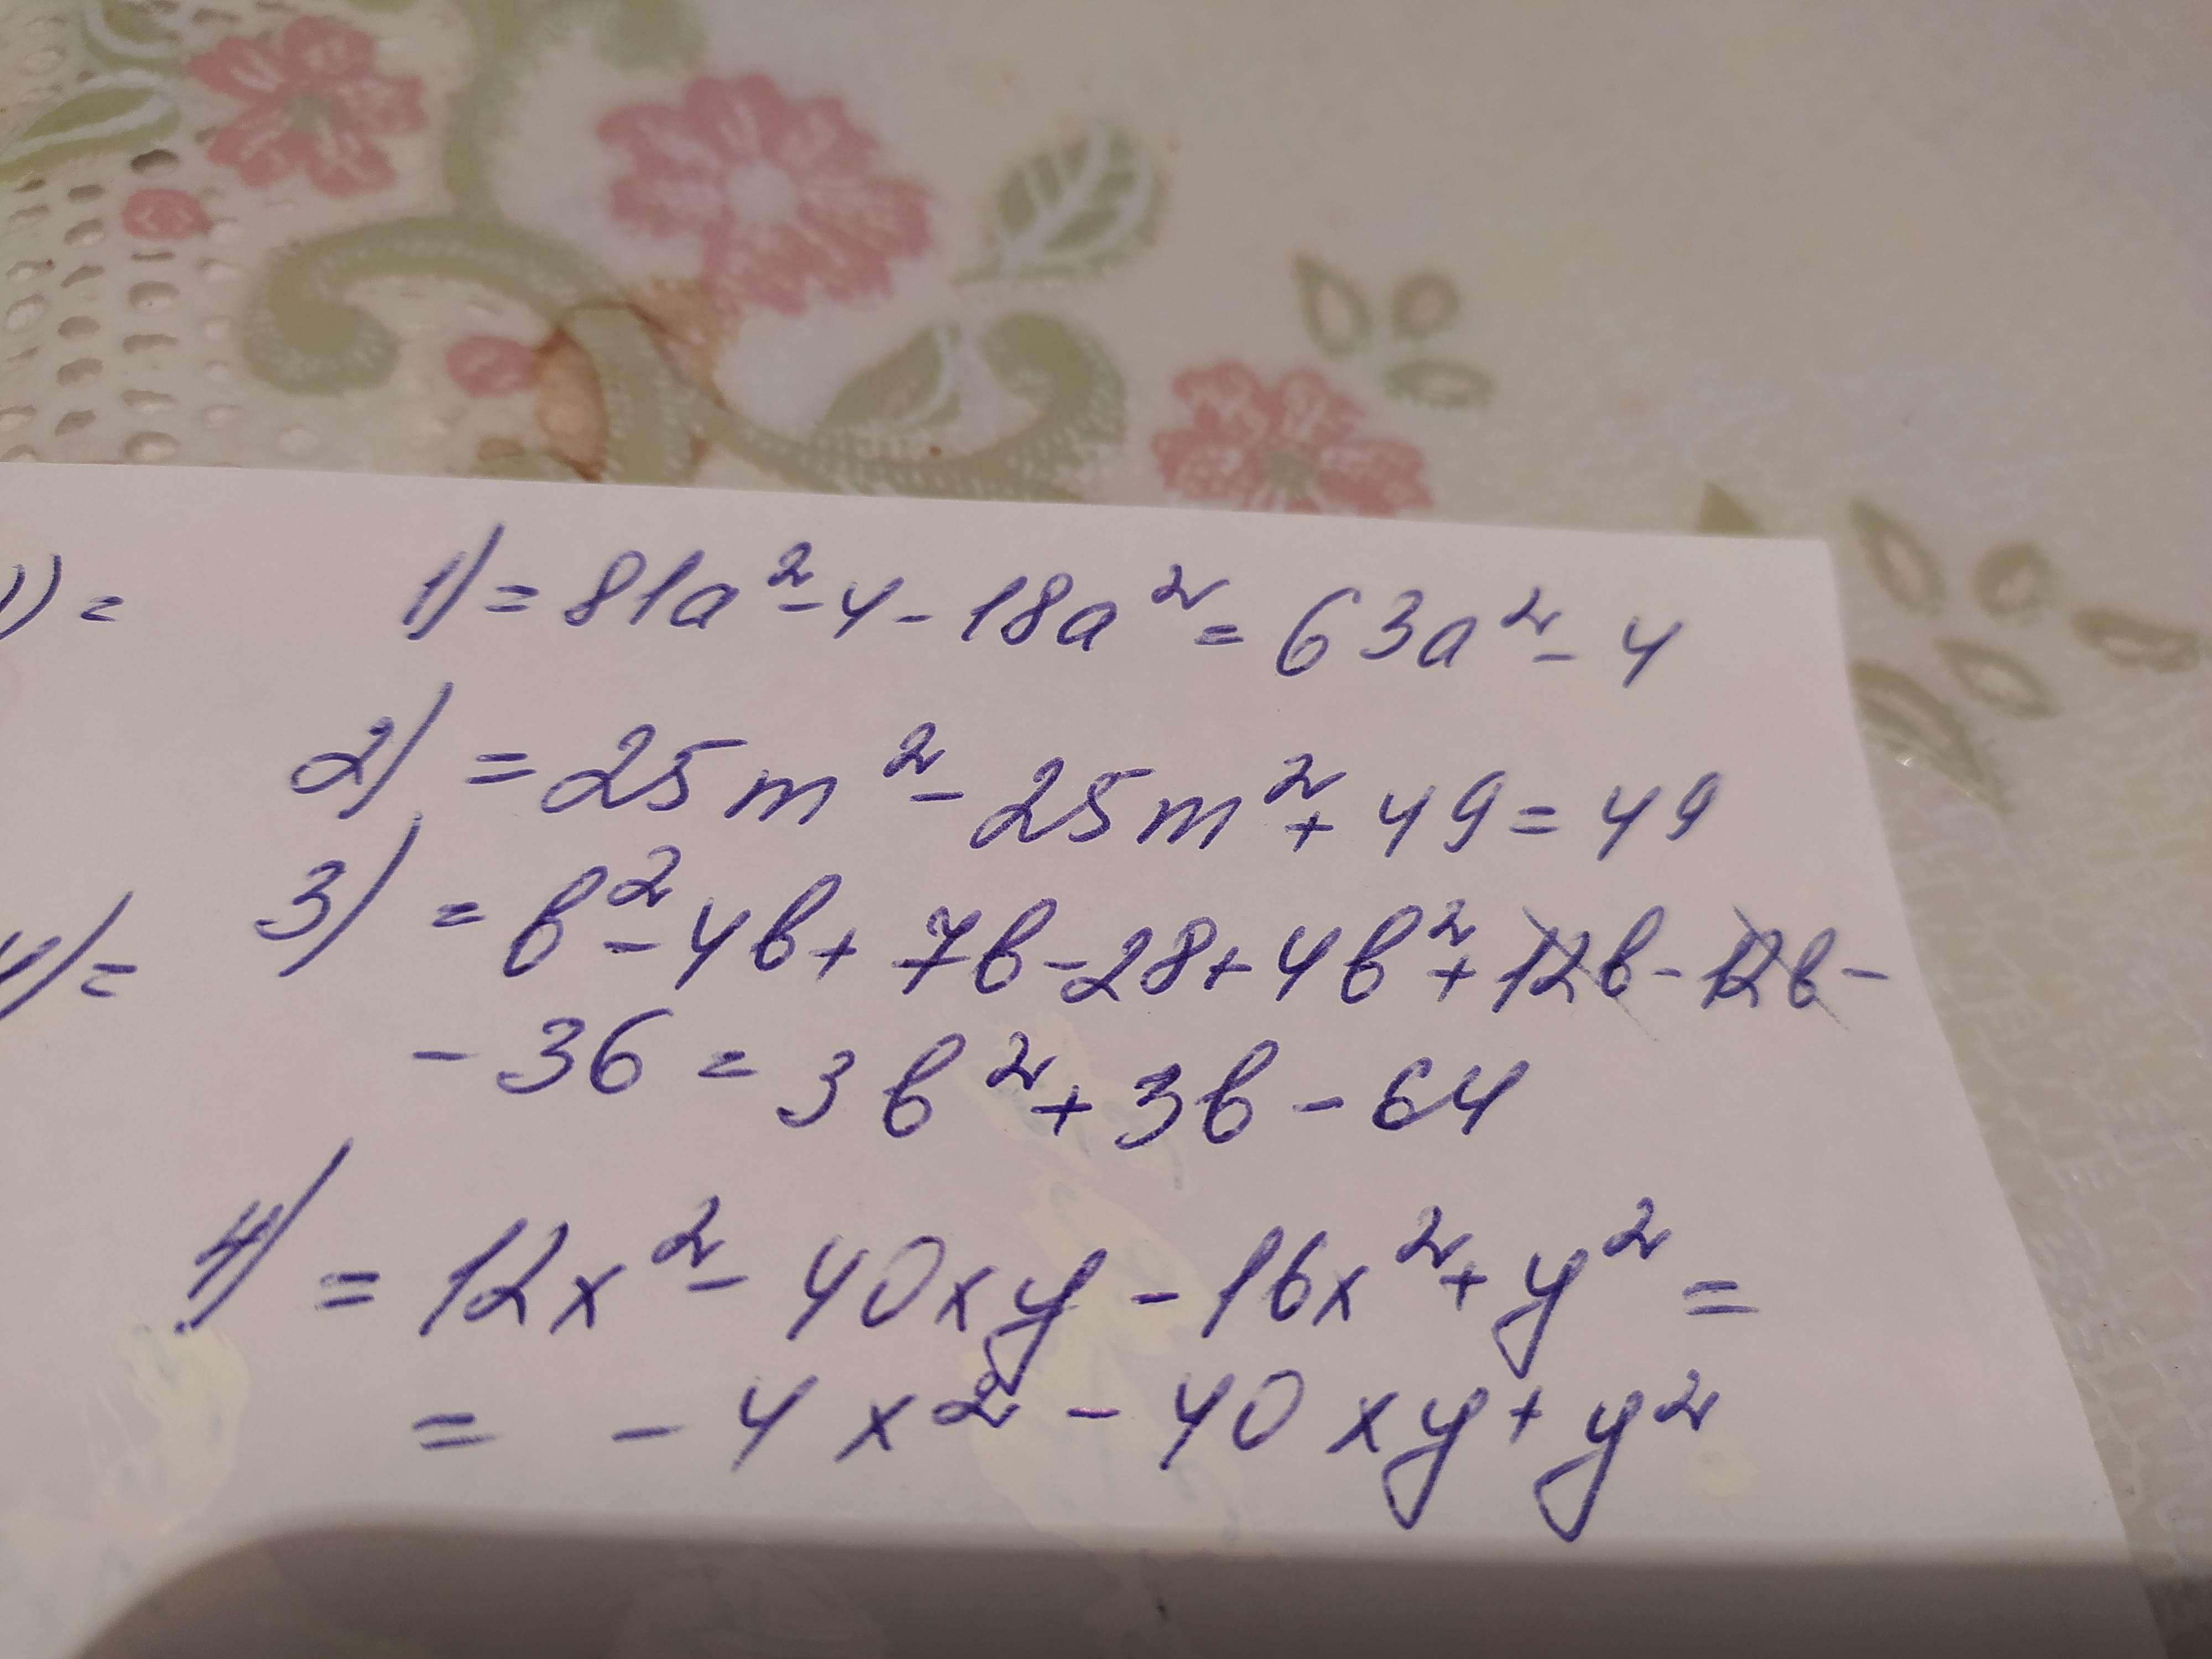 1) =
1) = 81a² - 4 - 18a² = 63a² - 4
2) = 25m² - 25m² + 49 = 49
3) = b² - 4b + 7b - 28 + 4b² + 12b - 12b -
4) =
- 36 = 3b² + 3b - 64
4) = 12x² - 40xy - 16x² + y² =
= - 4x² - 40xy + y²